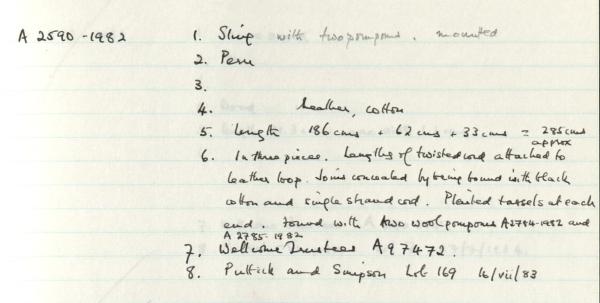 A 2590-1982 1. Sling with two pompoms. mounted
2. Peru
3.
4. leather, cotton
5. Length 186 cms + 62 cms + 33 cms = 285 cms
aprox
6. In three pieces. Lengths of twisted cord attached to
leather loop. Joins concealed by being bound with black
cotton and single strand cord. Plaited tassels at each
end. Found with two wool pompoms A2784-1982 and
A 2785-1982
7. Wellcome Trustees A97472.
8. Puttick and Simpson Lot 169 /vii/83